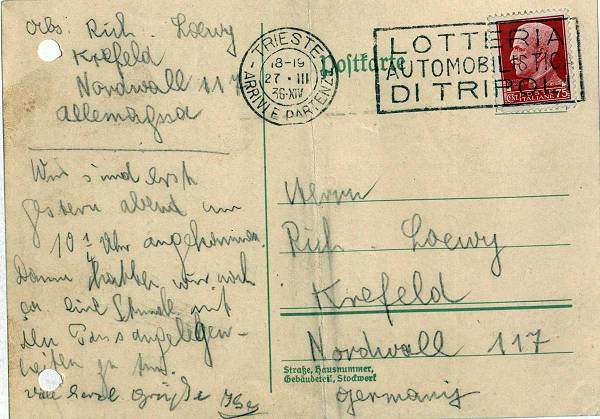 Abs. Rich. Loewy
Krefeld
Nordwall 117
Allemagna
Wir sind erst
gestern abend um
10 Uhr angekommen.
Dann hatten wir noch
ca. eine Stunde mit
den Passangelegen-
heiten zu tun.
Grüße
TRIESTE
18-19
27 · III
36·XIV
ARRIVI E PARTENZE
Postkarte
LOTTERIA
AUTOMOBILISTICA
DI TRIPOLI
POSTE ITALIANE 75
Herrn
Rich. Loewy
Krefeld
Nordwall 117
Straße, Hausnummer,
Gebäudeteil, Stockwerk
Germany